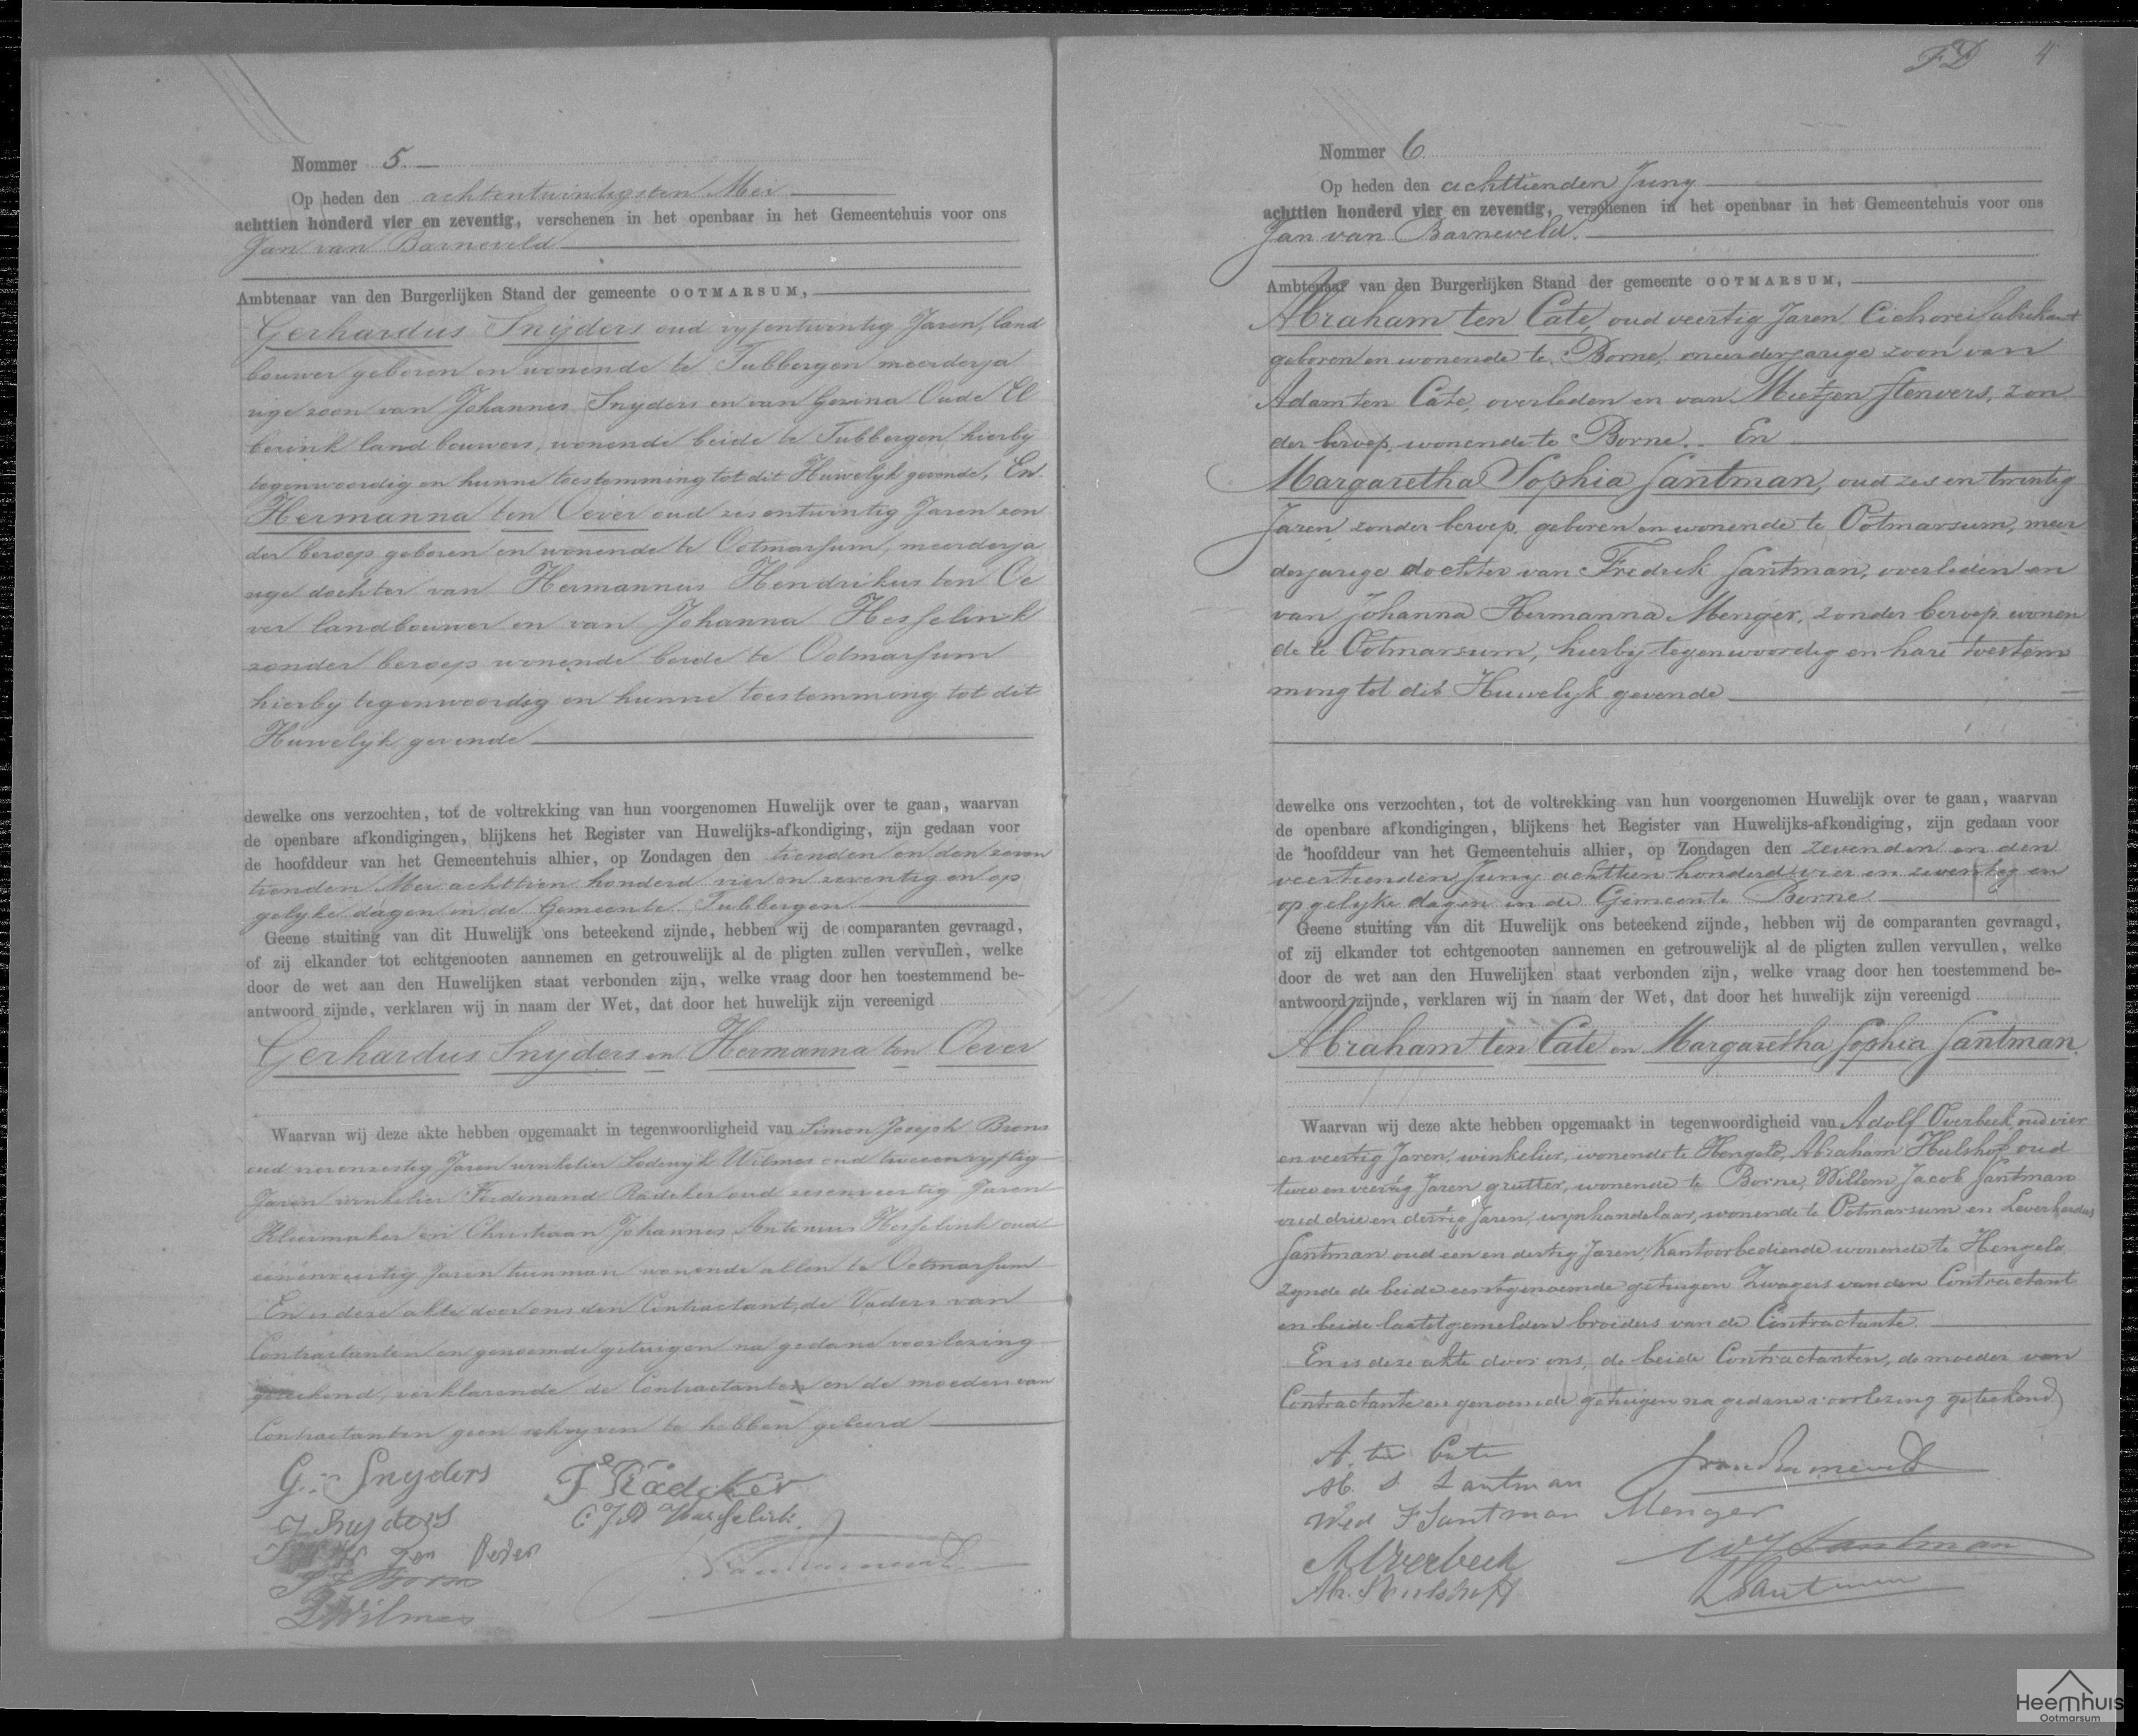 Nommer 5.
Op heden den achtentwintigsten Mei
achttien honderd vier en zeventig, verschenen in het openbaar in het Gemeentehuis voor ons
Jan van Barneveld
Ambtenaar van den Burgerlijken Stand der gemeente OOTMARSUM,
Gerhardus Snijders oud vyfentwintig Jaren, land
bouwer geboren en wonende te Tubbergen meerderja
rige zoon van Johannes Snyders en van Gezina Oude El
berink landbouwers, wonende beide te Tubbergen hierby
tegenwoordig en hunne toestemming tot dit Huwelyk gevende, En
Hermanna ten Oever oud zesentwintig Jaren zon
der beroep geboren en wonende te Ootmarsum, meerderja
rige dochter van Hermannus Hendrikus ten Oe
ver landbouwer en van Johanna Hesselink
zonder beroep wonende beide te Ootmarsum
hierby tegenwoordig en hunne toestemming tot dit
Huwelyk gevende
dewelke ons verzochten, tot de voltrekking van hun voorgenomen Huwelijk over te gaan, waarvan
de openbare afkondigingen, blijkens het Register van Huwelijks-afkondiging, zijn gedaan voor
de hoofddeur van het Gemeentehuis alhier, op Zondagen den tienden en den zeven
tienden Mei achttien honderd vier en zeventig en op
gelyke dagen in de Gemeente Tubbergen
Geene stuiting van dit Huwelijk ons beteekend zijnde, hebben wij de comparanten gevraagd,
of zij elkander tot echtgenooten aannemen en getrouwelijk al de pligten zullen vervullen, welke
door de wet aan den Huwelijken staat verbonden zijn, welke vraag door hen toestemmend be-
antwoord zijnde, verklaren wij in naam der Wet, dat door het huwelijk zijn vereenigd
Gerhardus Snyders en Hermanna ten Oever
Waarvan wij deze akte hebben opgemaakt in tegenwoordigheid van Simon Joseph Brons
oud Jaren winkelier Lodewyk Wilmes oud tweeenvyftig
Jaren winkelier Ferdinand Radeker oud zesenveertig Jaren
Kleermaker en Christiaan Johannes Antonius Hesselink oud
eenenveertig Jaren tuinman wonende allen te Ootmarsum
En is deze akte door ons den Contractant, de Vaders van
Contractanten en genoemde getuigen na gedane voorlezing
geteekend, verklarende de Contractante en de moeders van
Contractanten geen schryven te hebben geleerd
G. Snyders
F Radeker
J Snyders
C J A Hesselink
ten Oever
S J Brons
L Wilmes
FD 4
Nommer 6
Op heden den achttienden Juny
achttien honderd vier en zeventig, verschenen in het openbaar in het Gemeentehuis voor ons
Jan van Barneveld.
Ambtenaar van den Burgerlijken Stand der gemeente OOTMARSUM,
Abraham ten Cate, oud veertig Jaren Cichoreifabrikant
geboren en wonende te Borne, meerderjarige zoon van
Adam ten Cate, overleden en van Mietjen Stenvers, zon
der beroep, wonende te Borne. En
Margaretha Sophia Santman, oud zes en twintig
Jaren, zonder beroep, geboren en wonende te Ootmarsum, meer
derjarige dochter van Fredrik Santman, overleden en
van Johanna Hermanna Menger, zonder beroep wonen
de te Ootmarsum, hierby tegenwoordig en hare toestem
ming tot dit Huwelyk gevende
dewelke ons verzochten, tot de voltrekking van hun voorgenomen Huwelijk over te gaan, waarvan
de openbare afkondigingen, blijkens het Register van Huwelijks-afkondiging, zijn gedaan voor
de hoofddeur van het Gemeentehuis alhier, op Zondagen den zevenden en den
veertienden Juny achttien honderd vier en zeventig en
op gelyke dagen in de Gemeente Borne
Geene stuiting van dit Huwelijk ons beteekend zijnde, hebben wij de comparanten gevraagd,
of zij elkander tot echtgenooten aannemen en getrouwelijk al de pligten zullen vervullen, welke
door de wet aan den Huwelijken staat verbonden zijn, welke vraag door hen toestemmend be-
antwoord zijnde, verklaren wij in naam der Wet, dat door het huwelijk zijn vereenigd
Abraham ten Cate en Margaretha Sophia Santman.
Waarvan wij deze akte hebben opgemaakt in tegenwoordigheid van Adolf Overbeek, oud vier
en veertig Jaren, winkelier, wonende te Hengelo, Abraham Hulshof oud
twee en veertig Jaren grutter, wonende te Borne, Willem Jacob Santman
oud drie en dertig Jaren, wynhandelaar, wonende te Ootmarsum en Leverhardus
Santman oud een en dertig Jaren, Kantoorbediende wonende te Hengelo
zynde de beide eerstgenoemde getuigen Zwagers van den Contractant
en beide laatstgemelden broeders van de Contractante.
En is deze akte door ons, de beide Contractanten, de moeder van
Contractante en genoemde getuigen na gedane voorlezing geteekend
A. ten Cate
J van Barneveld
M. S. Santman
Wed F Santman Menger
A Overbeek
W J Santman
Ab. Hulshoff
L Santman
Heemhuis
Ootmarsum